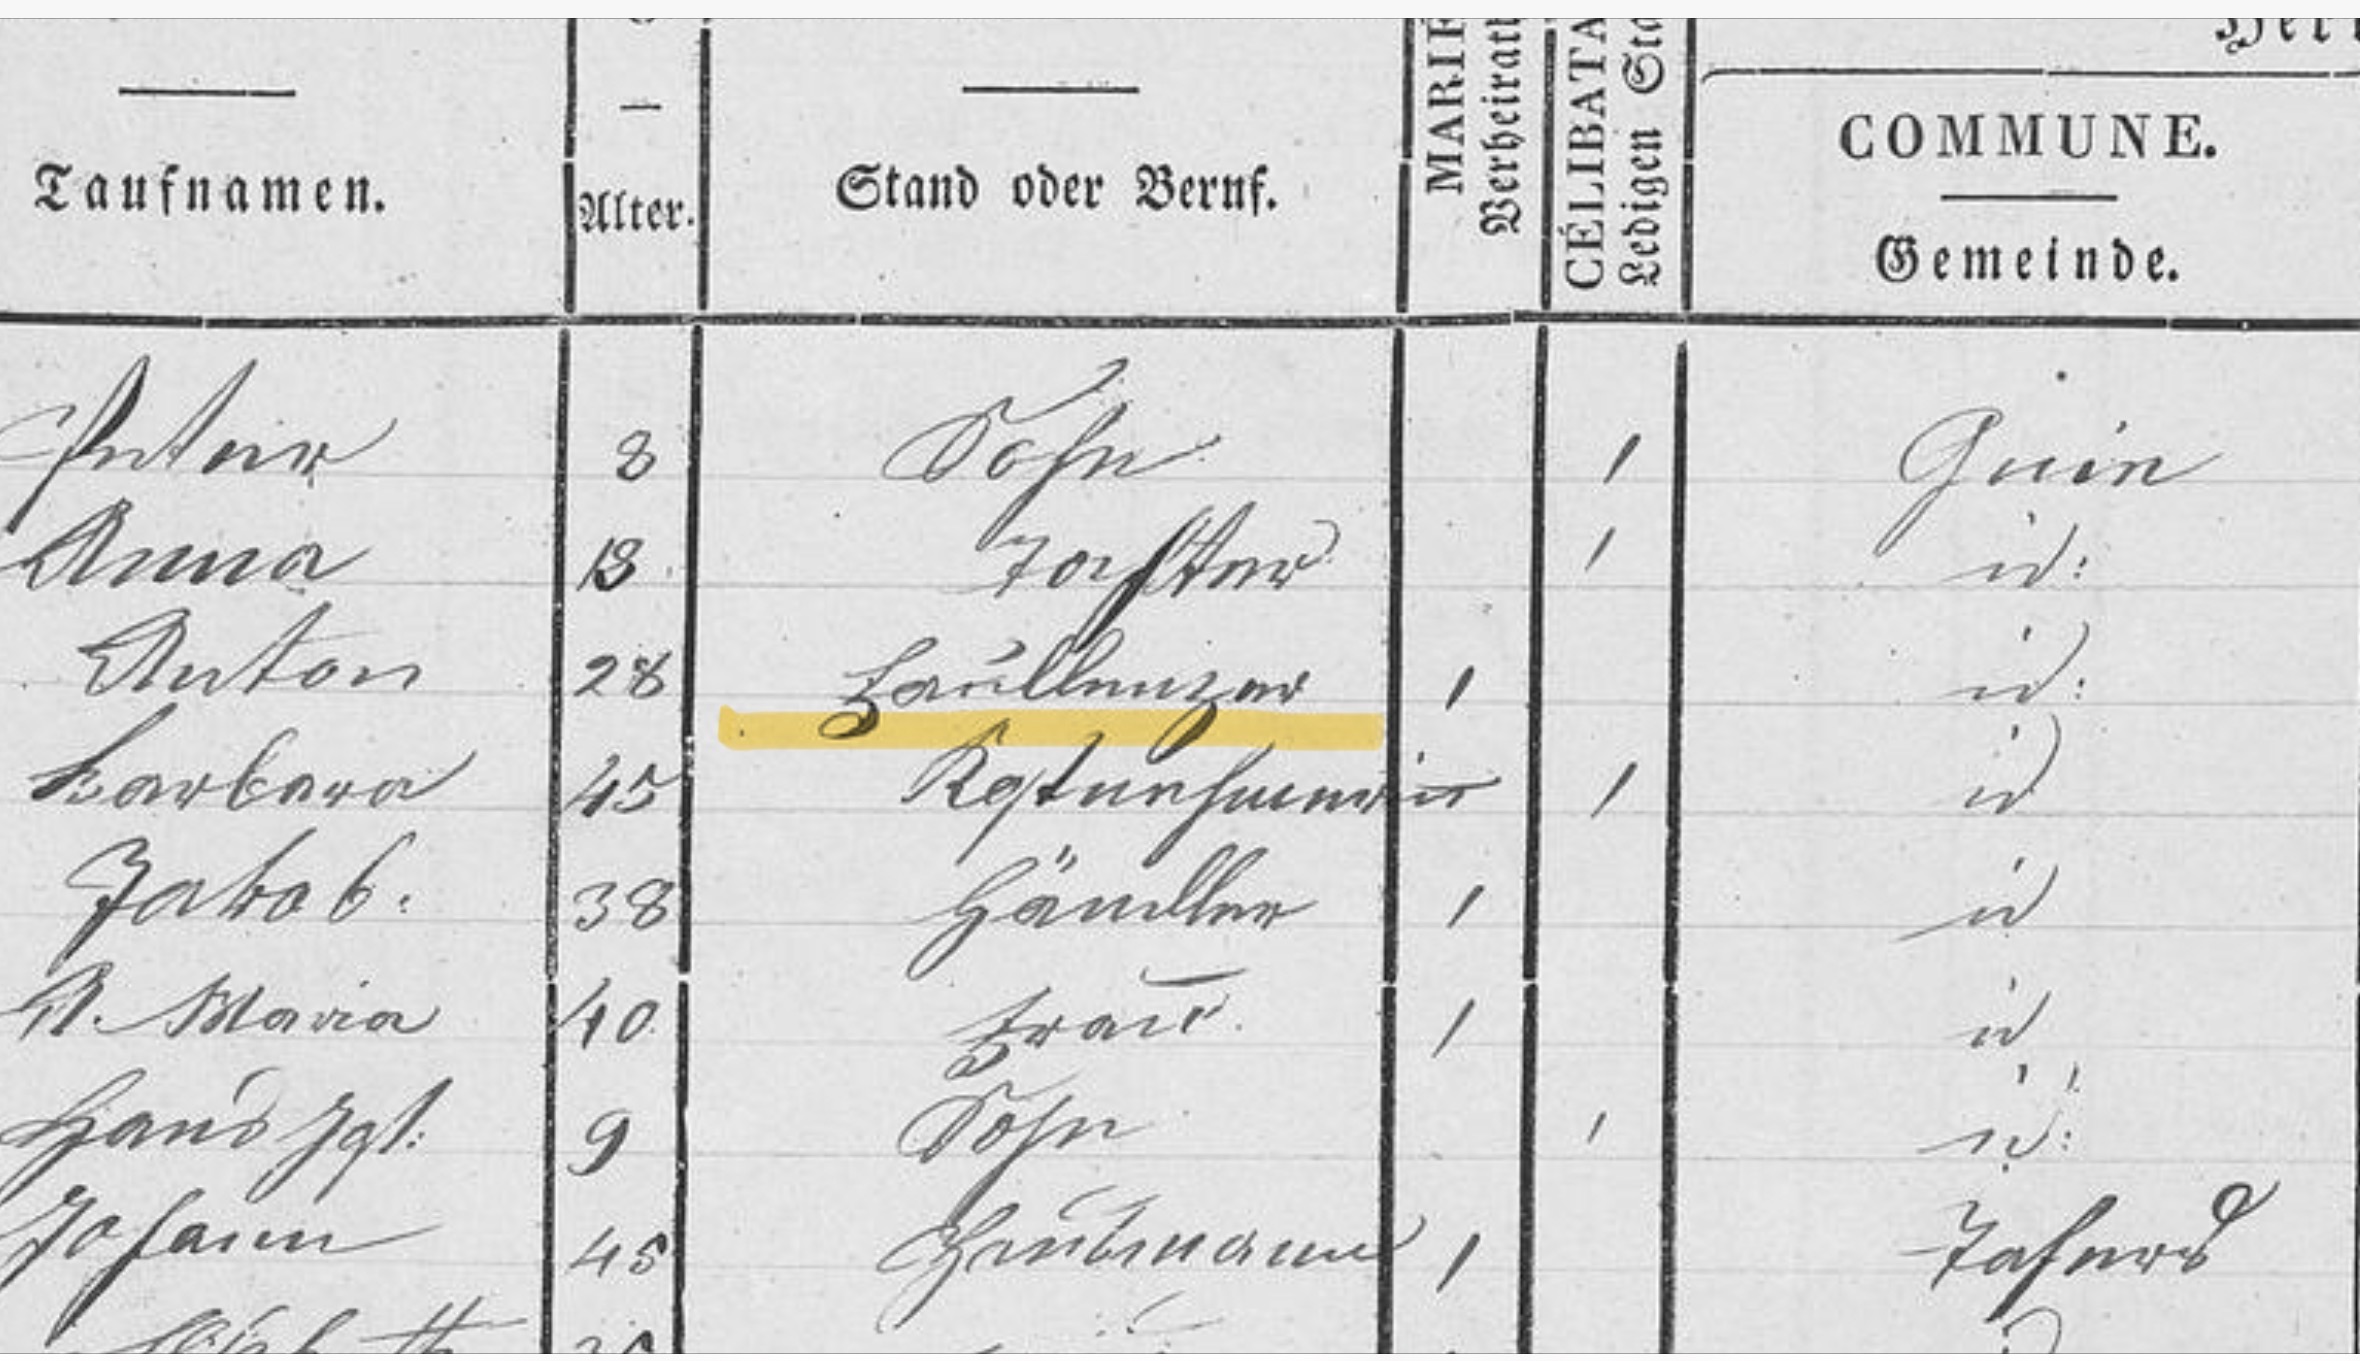 Taufnamen. Alter. Stand oder Beruf. MARIÉ Verheirath CÉLIBATA Ledigen Sta COMMUNE. Gemeinde.
Peter 8 Sohn 1 Guin
Anna 13 Tochter 1 id:
Anton 28 Faullenzer 1 id:
Barbara 45 1 id
Jakob: 38 Händler 1 id
A. Maria 40 Frau 1 id
Hans 9 Sohn 1 id:
Johann 45 1 Tafers